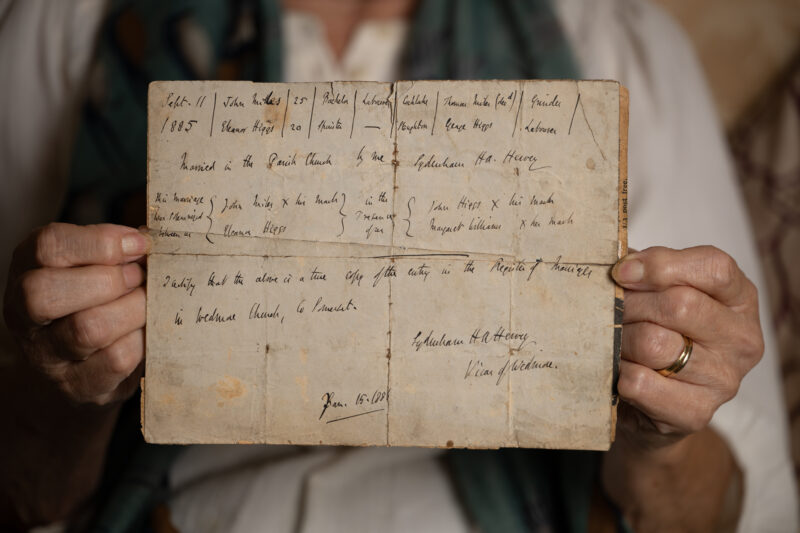 Sept. 11 | John Miles | 25 | Bachelor | Labourer | Cocklake | Thomas Miles (decd) | Guider
1885 | Eleanor Higgs | 20 | Spinster | — | Stoughton | George Higgs | Labourer
Married in the Parish Church by me Sydenham H A. Hervey
This marriage was solemnized between us { John Miles × his mark Eleanor Higgs } in the Presence of us { John Higgs × his mark Margaret Williams × her mark
I certify that the above is a true copy of the entry in the Register of Marriages
in Wedmore Church, Co Somerset.
Sydenham H A Hervey
Vicar of Wedmore.
Jan. 15.
post free.